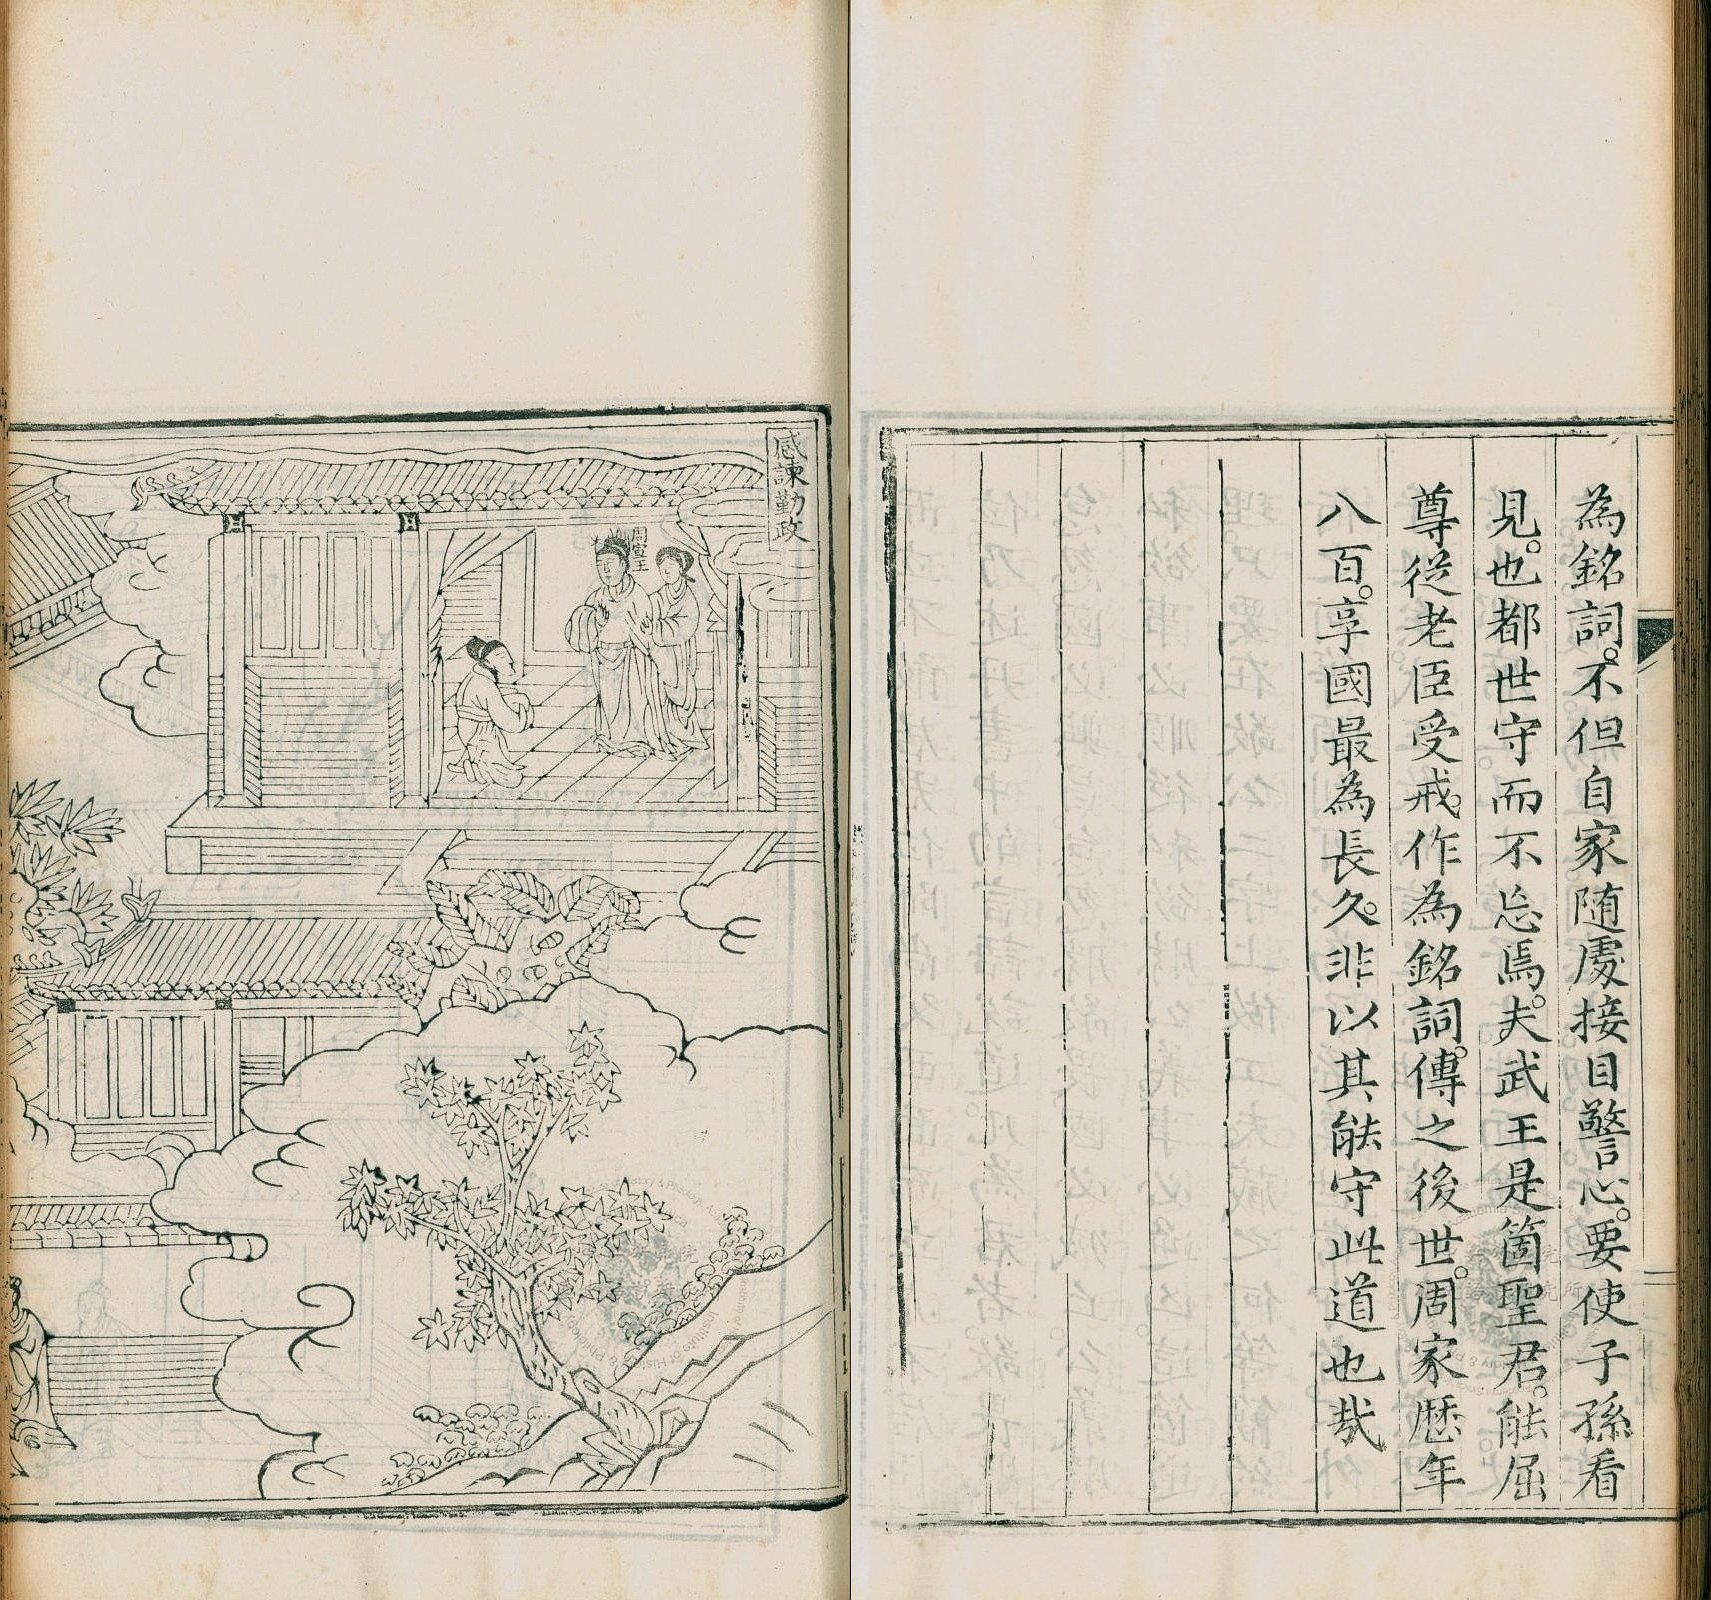 為銘詞。不但自家随處接目警心。要使子孫看
見。也都世守而不忘焉。夫武王是箇聖君。能屈
尊從老臣受戒。作為銘詞。傳之後世。周家歷年
八百。享國最為長久。非以其能守此道也哉
感諫勤政
周宣王